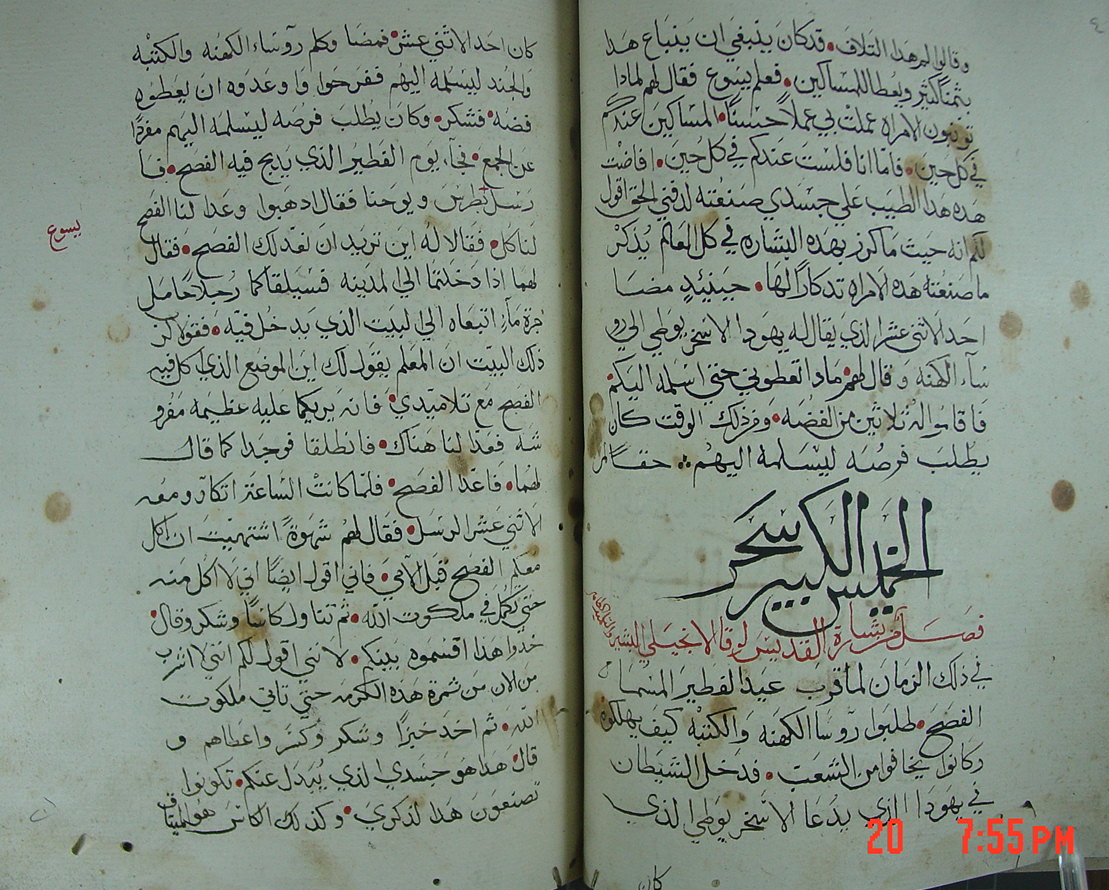 وقالوا لم هدا التلاف٠ قدكان ينبغي ان ينباع هدا
بتمناً كتير ويعطا للمساكين٠ فعلم يسوع فقال لهم لمادا
تونبون الامراه عملت بي عملاً حسناً٠ المساكين عندكم
في كل حين٠ فاما انا فلست عندكم في كل حين٠ افاضت
هده هدا الطيب على جسدي صنعته لدفني الحق اقول
لكم انه حيت ما كرز بهده البشاره في كل العالم يدكر
ما صنعته هده الامراه تدكاراً لها٠ حينيدٍ مضا
احد الاتني عشر الذي يقال له يهودا الاسخريوطي الي رو
سآء الكهنه وقال لهم مادا تعطوني حتي اسلمه اليكم٠
فاقاموا له تلاتين من الفضه٠ ومن دلك الوقت كان
يطلب فرصه ليسلمه اليهم ؞ حقاً
الخميس الكبير سحر
فصل من بشارة القديس لوقا الانجيلي البشير
في دلك الزمان لما قرب عيد الفطير المسما
الفصح٠ طلبوا روسا الكهنه والكتبه كيف يهلكوه
وكانوا يخافوا من الشعب٠ فدخل الشيطان
في يهودا الذي يدعا الاسخريوطي الذي
كان
كان احد الاتني عشر٠ فمضا وكلم روساء الكهنه والكتبه
والجند ليسلمه اليهم ففرحوا وا وعدوه ان يعطوه
فضه٠ فشكر٠ وكان يطلب فرصه ليسلمه اليهم مفرداً
عن الجمع٠ فجآء يوم الفطير الذي يدبح فيه الفصح٠ فا
رسل بطرس ويوحنا فقال ادهبوا وعدا لنا الفصح
يسوع
لناكل٠ فقالا له اين تريد ان نعد لك الفصح٠ فقال
لهما ادا دخلتما الي المدينه فسيلقاكما رجلاً حامل
جرة مآءٍ اتبعاه الي البيت الذي يدخل فيه٠ فقولا لرب
دلك البيت ان المعلم يقول لك اين الموضع الذي اكل فيه
الفصح مع تلاميدي٠ فانه يريكما عليه عظيمه مفرو
شه فعدا لنا هناك٠ فانطلقا فوجدا كما قال
لهما٠ فاعدا الفصح٠ فلما كانت الساعه اتكا ومعه
الاتني عشر الرسل٠ فقال لهم شهوةً اشتهيت ان اكل
معكم الفصح قبل الامي٠ فاني اقول ايضاً اني لا اكل منه
حتي يكمل في ملكوت الله٠ تم تناول كاساً وشكر وقال٠
خدوا هدا اقسموه بينكم٠ لانني اقول لكم انني لا اشرب
من الان من تمرة هده الكرمه حتي تاتي ملكوت
الله٠ تم اخد خبزاً وشكر وكسر واعطاهم و
قال هدا هو جسدي الذي يبدل عنكم٠ تكونوا
تصنعون هدا لدكري٠ وكدلك الكاس هو الميتاق